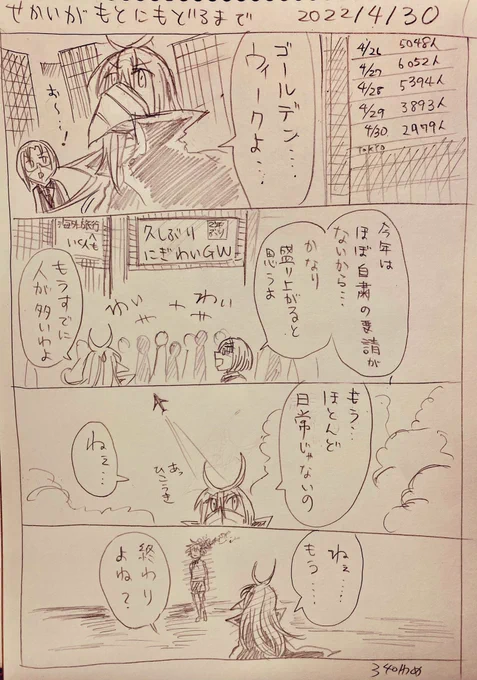 せかいがもとにもどるまで
2022/4/30
4/26 5048人
4/27 6052人
4/28 5394人
4/29 3893人
4/30 2979人
TOKYO
ゴールデン…
ウィークよ…
お〜…!
今年は
ほぼ自粛の要請が
ないから…
かなり
盛り上がると
思うよ
久しぶり
にぎわいGW
海外旅行
いく人へも
わい
わい
もうすでに
人が多いわよ
もう…
ほとんど
日常じゃないの
あっ
ひこうき
ねぇ…
ねぇ……
もう……
終わり
よね?
340日め